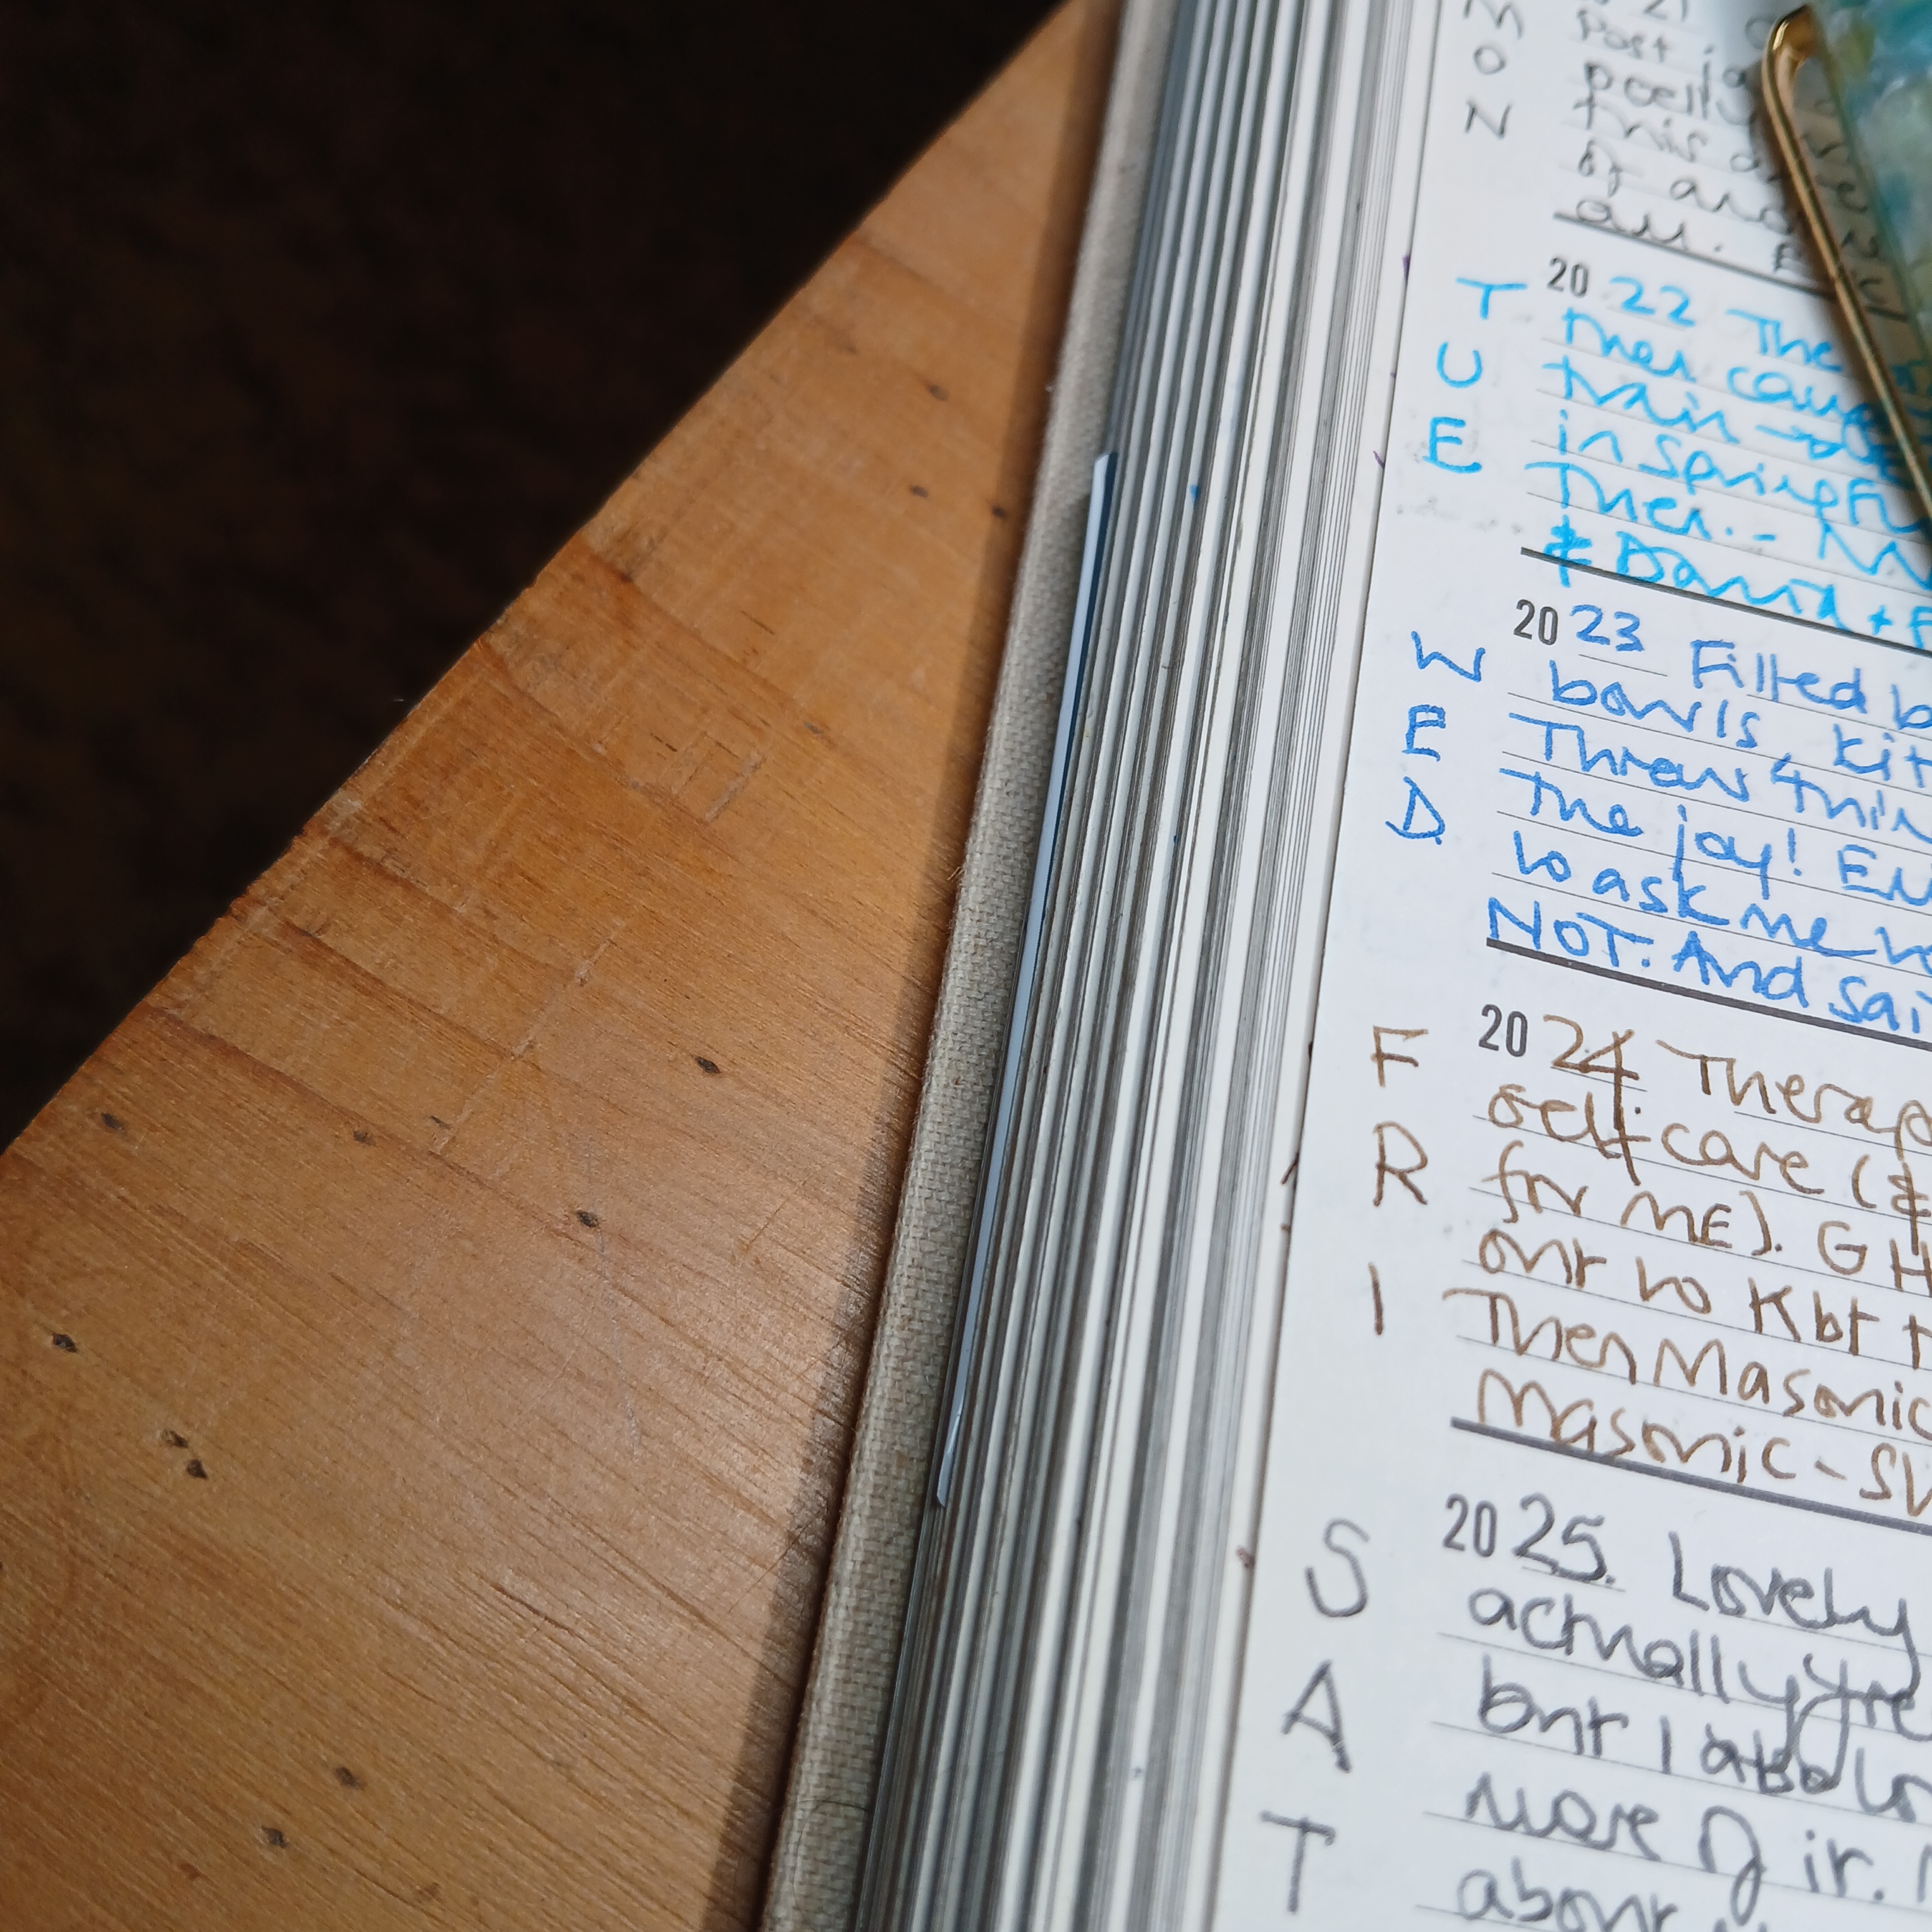 MON
Post
this
of
all.
TUE
20 22 The
then
train
in Spring
Then. - M
& David + F
WED
20 23 Filled b
bowls, kit
Throws 4 thin
the joy! En
to ask me
NOT. And Sai
FRI
20 24 Therap
self care (&
for ME). GH
out to Kbt t
Then Masonic
Masonic - SW
SAT
20 25. Lovely
actually
but I
more of it.
about